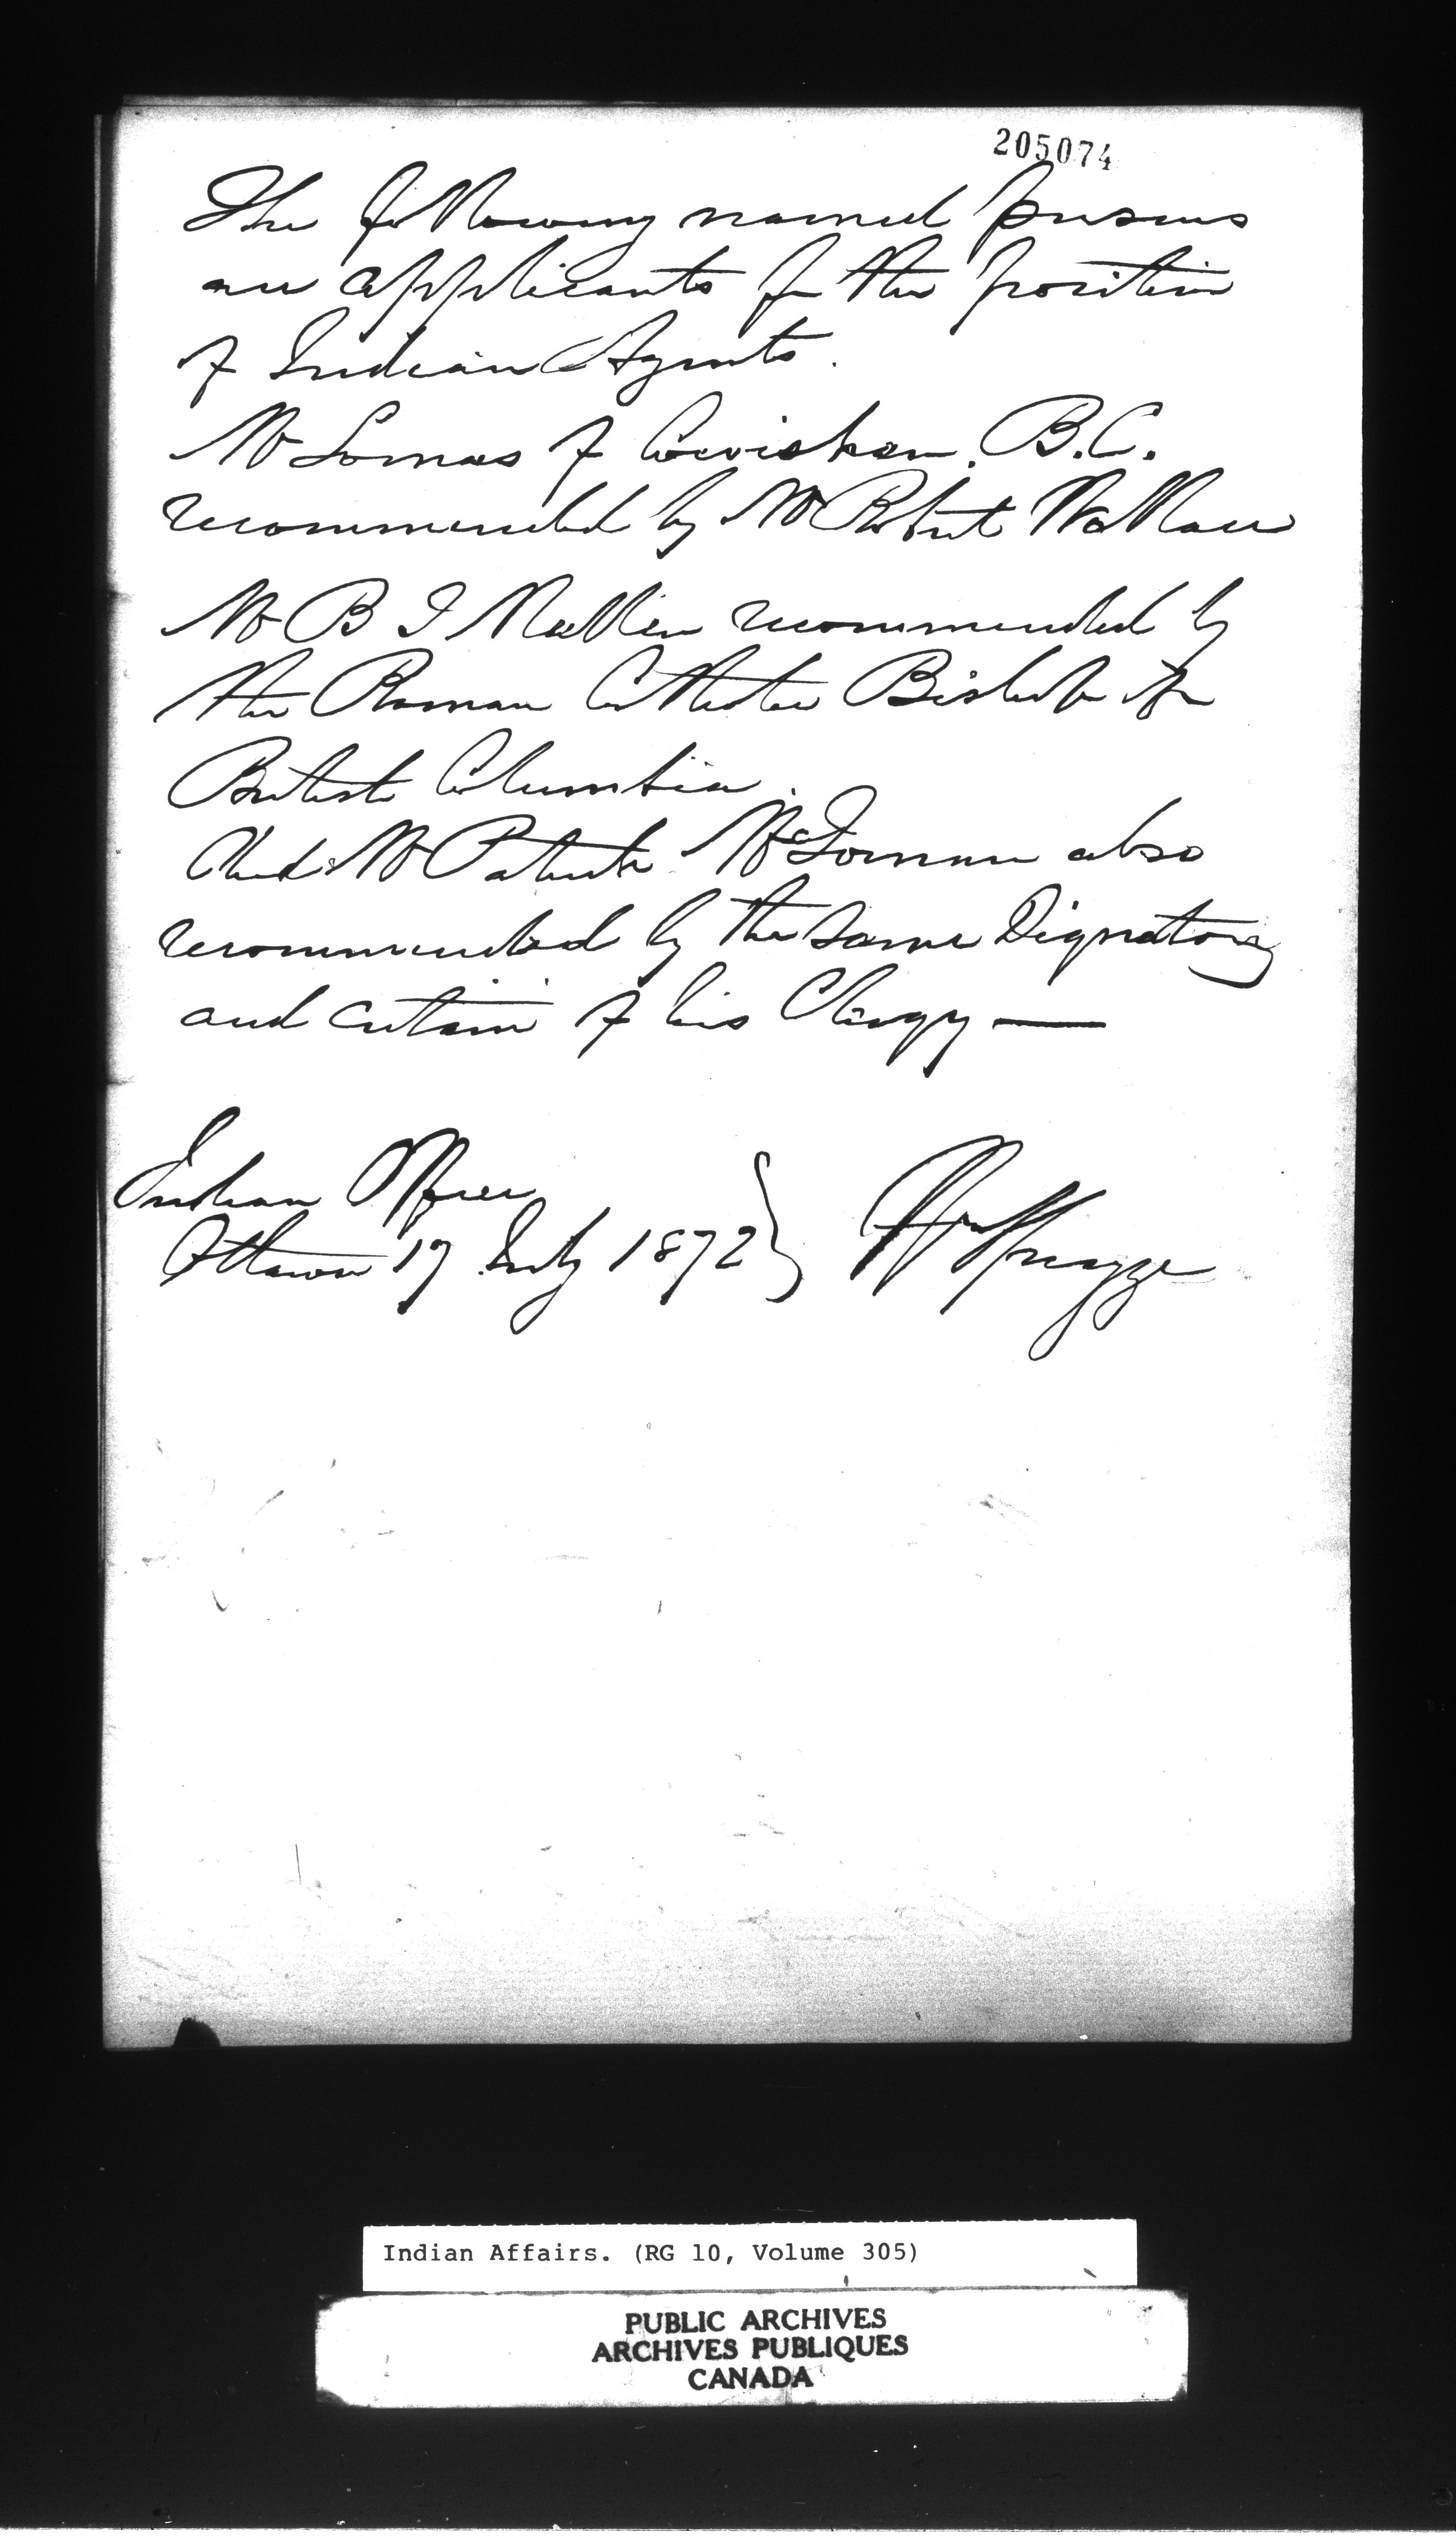 205074
The following named persons
are applicants for the position
of Indian Agents.
Mr Lomas of Cowichan. B.C.
recommended by Mr Robert Wallace
Mr B I recommended by
the Roman Catholic Bishop of
British Columbia.
And Mr Patrick also
recommended by the same Dignatory
and certain of his Clergy —
Indian Office
Ottawa 17 July 1872 } Wm Spragge
Indian Affairs. (RG 10, Volume 305)
PUBLIC ARCHIVES
ARCHIVES PUBLIQUES
CANADA